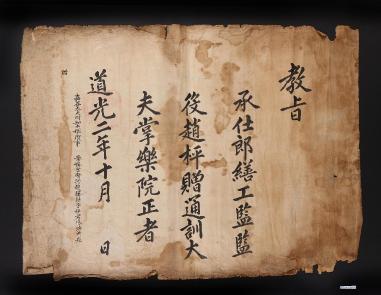 教旨
承仕郎繕工監監
役趙枰贈通訓大
夫掌樂院正者
道光二年十月 日